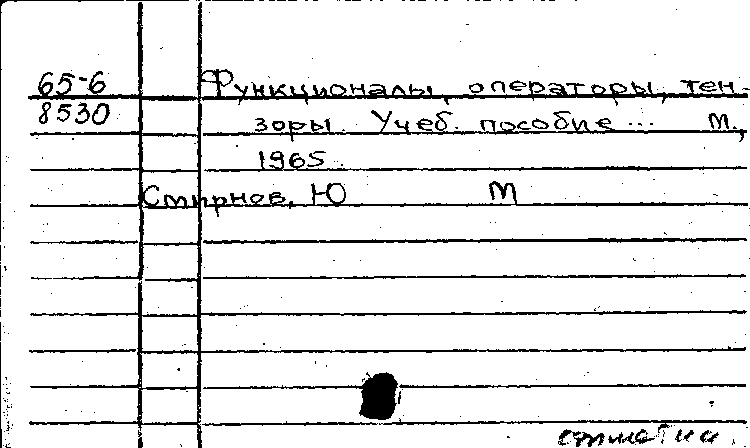 65-6 Функционалы, операторы, тен-
8530 зоры. Учеб. пособие ... М.,
1965.
Смирнов, Ю М